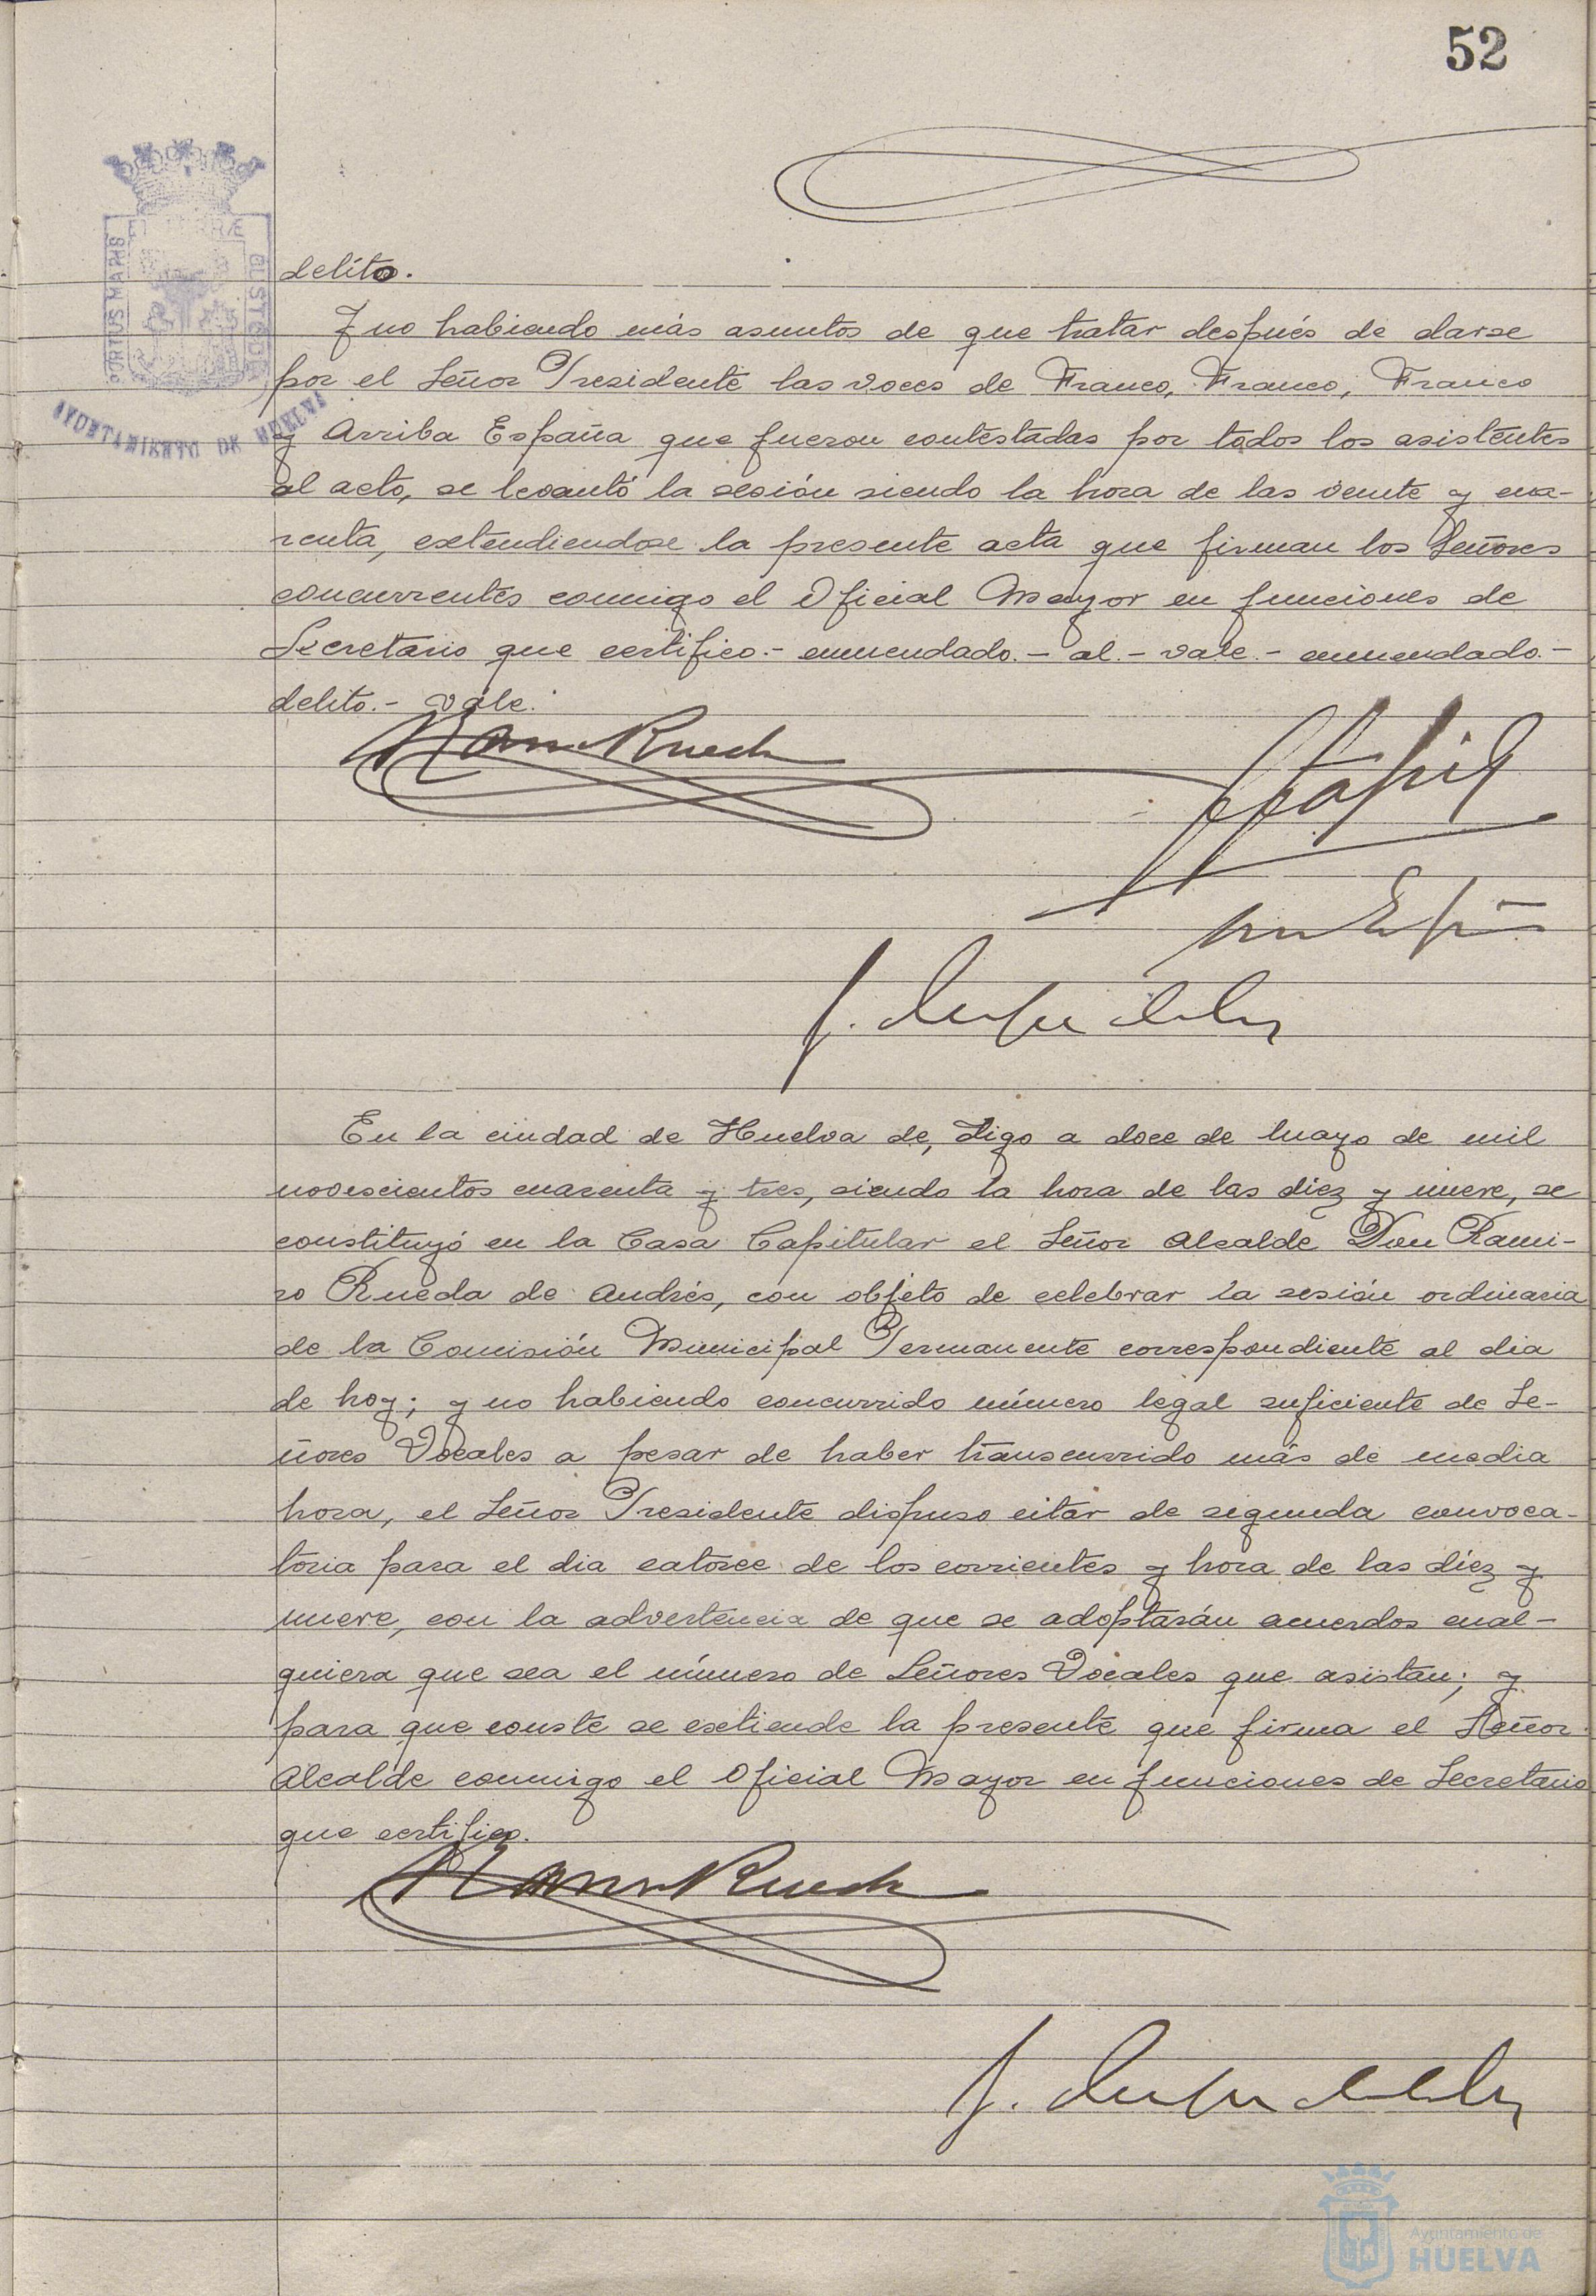 52
PORTUS MARIS ET TERRÆ CUSTODIA
AYUNTAMIENTO DE HUELVA
delito.
Y no habiendo más asuntos de que tratar después de darse
por el Señor Presidente las voces de Franco, Franco, Franco
y Arriba España que fueron contestadas por todos los asistentes
al acto, se levantó la sesión siendo la hora de las veinte y cua-
renta, extendiendose la presente acta que firman los Señores
concurrentes conmigo el Oficial Mayor en funciones de
Secretario que certifico.- enmendado.- al.- vale.- enmendado.-
delito.- vale.
Ramiro Rueda
En la ciudad de Huelva de, digo a doce de Mayo de mil
novescientos cuarenta y tres, siendo la hora de las diez y nueve, se
constituyó en la Casa Capitular el Señor Alcalde Don Rami-
ro Rueda de Andrés, con objeto de celebrar la sesión ordinaria
de la Comisión Municipal Permanente correspondiente al dia
de hoy; y no habiendo concurrido número legal suficiente de Se-
ñores Vocales a pesar de haber transcurrido más de media
hora, el Señor Presidente dispuso citar de segunda convoca-
toria para el dia catorce de los corrientes y hora de las diez y
nueve, con la advertencia de que se adoptarán acuerdos cual-
quiera que sea el número de Señores Vocales que asistan; y
para que conste se extiende la presente que firma el Señor
Alcalde conmigo el Oficial Mayor en funciones de Secretario
que certifico.
Ramiro Rueda
Ayuntamiento de
HUELVA